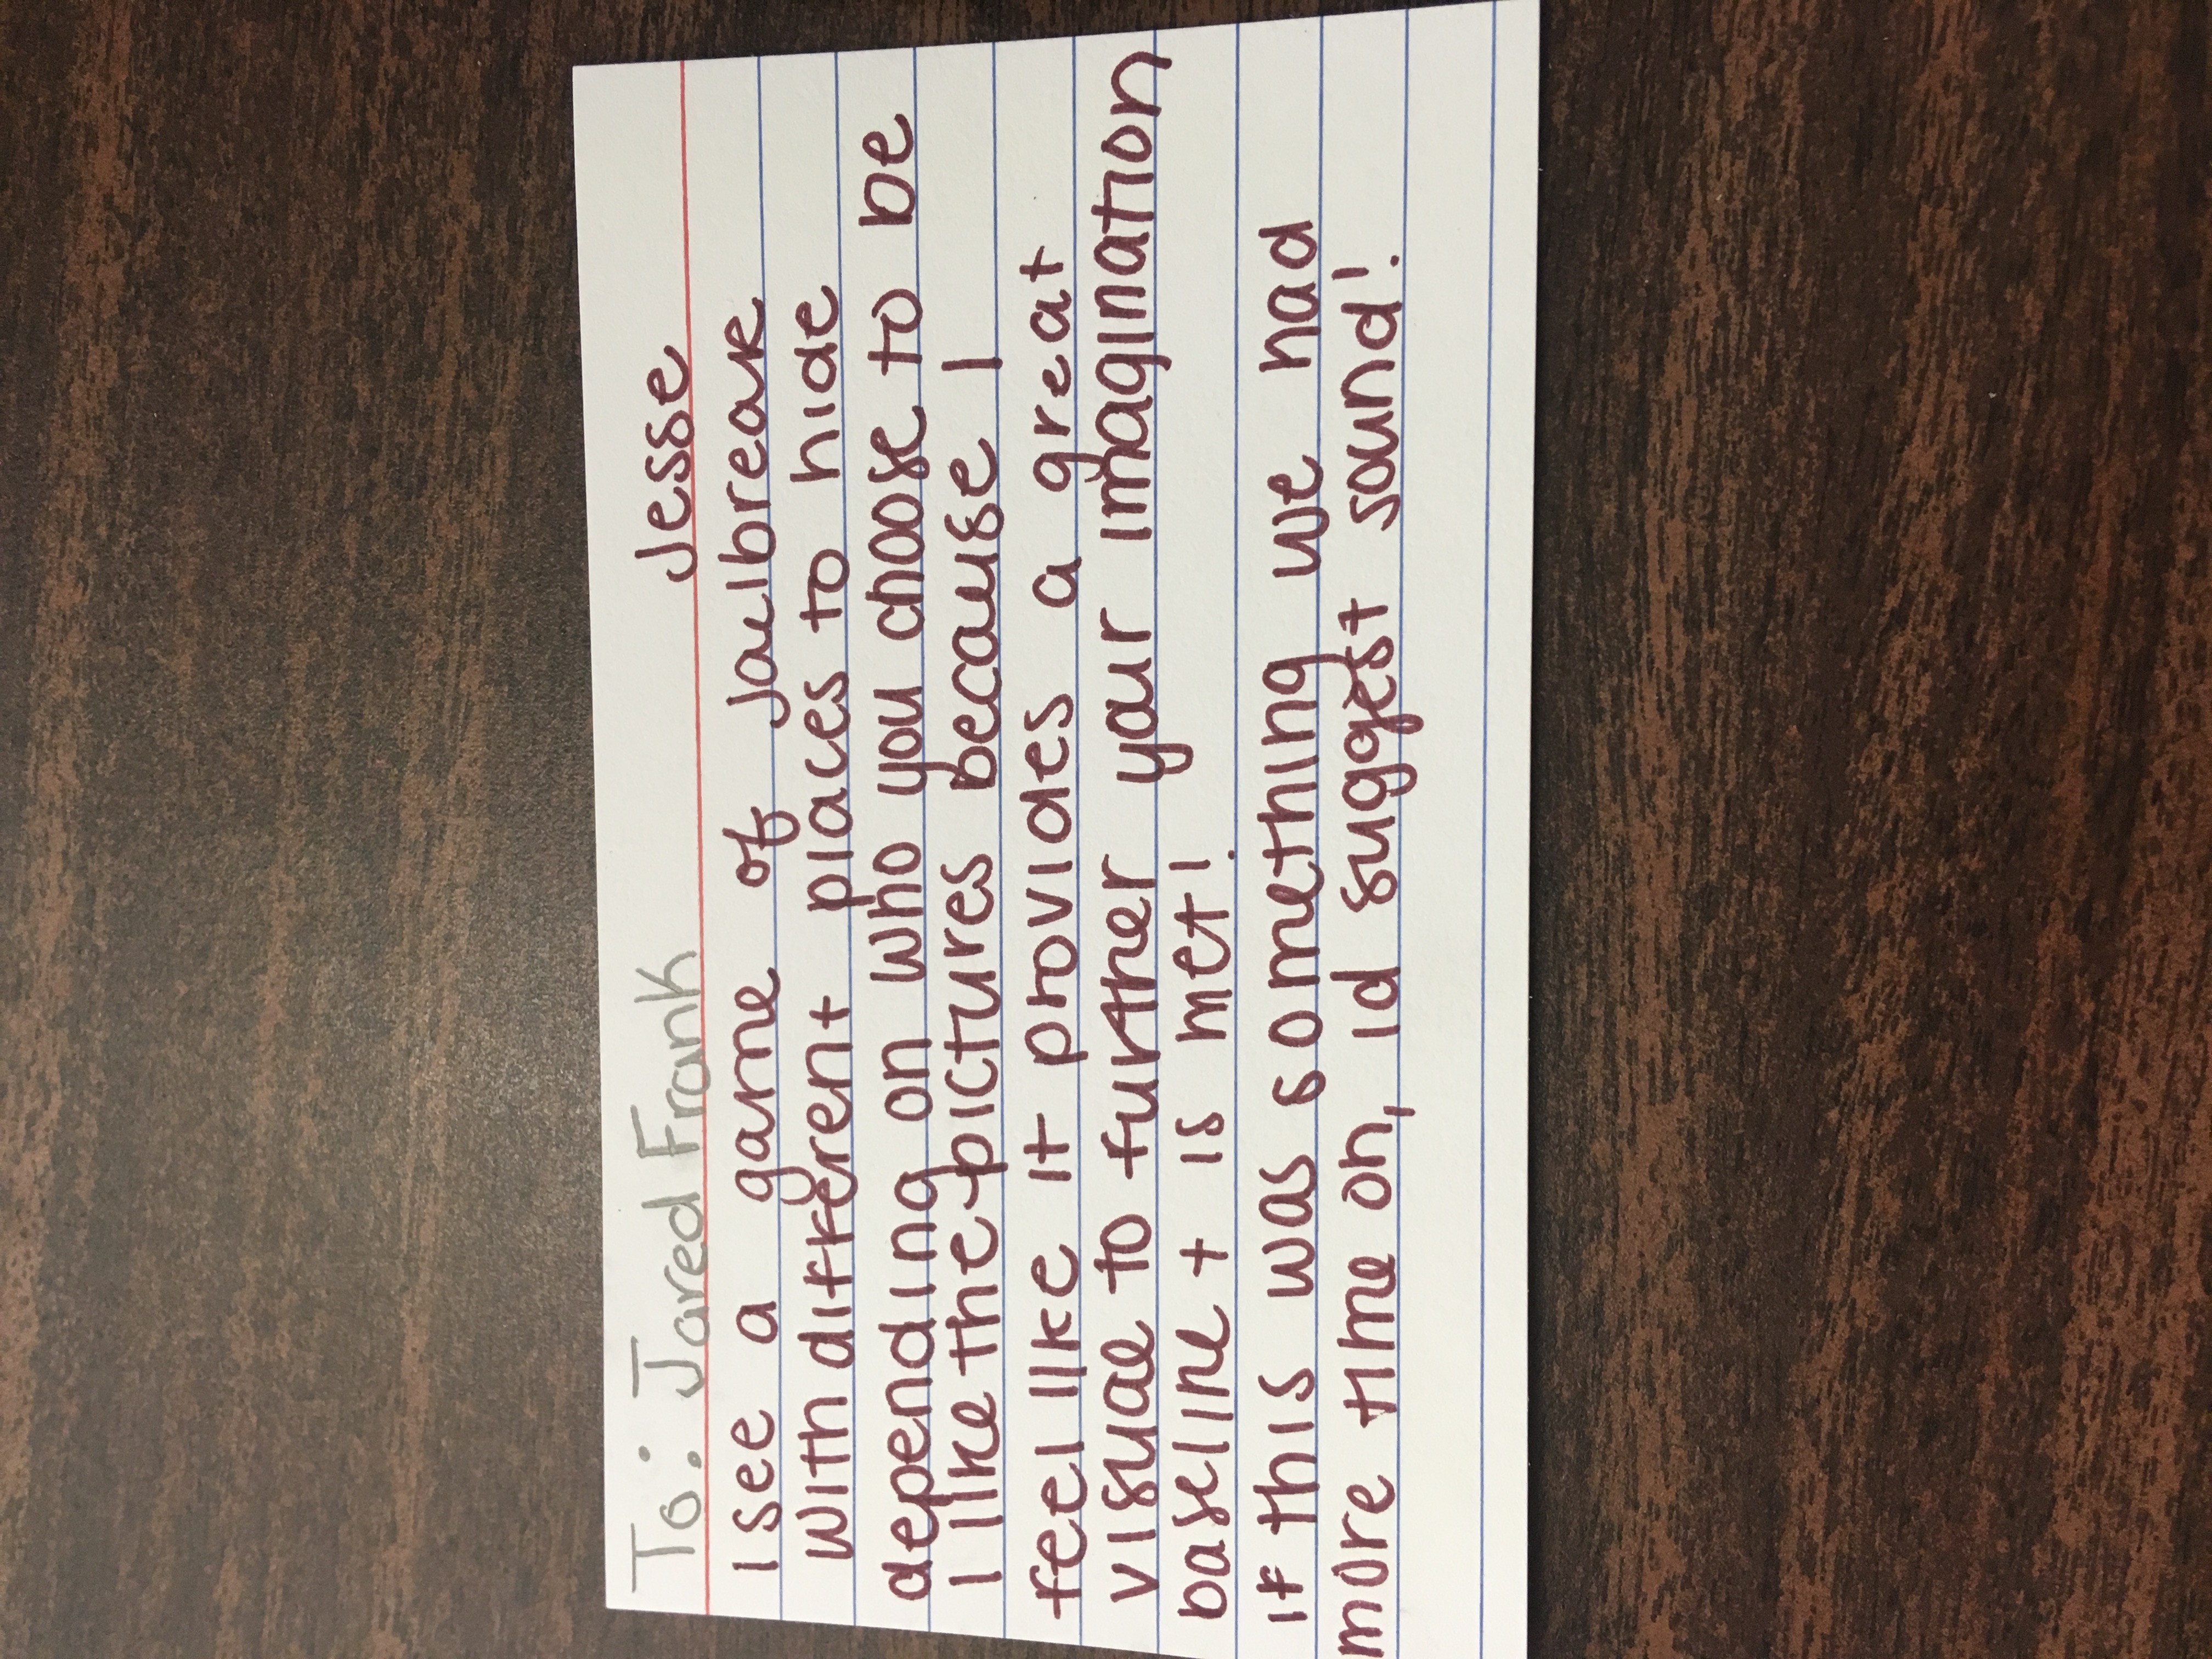 To: Jared Frank Jesse
I see a game of jailbreak
with different places to hide
depending on who you choose to be
I like the pictures because I
feel like it provides a great
visual to further your imagination
baseline + is met!
if this was something we had
more time on, id suggest sound!